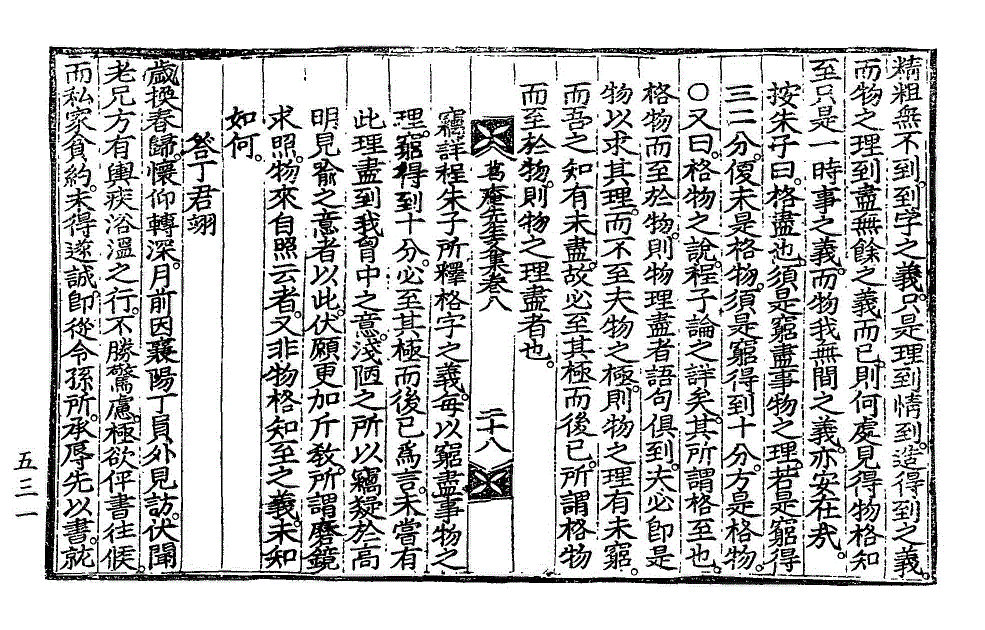 精粗無不到。到字之義。只是理到情到。造得到之義。
而物之理到盡無餘之義而已。則何處見得物格知
至只是一時事之義。而物我無間之義。亦安在哉。
按朱子曰。格盡也。須是窮盡事物之理。若是窮得
三二分。便未是格物。須是窮得到十分。方是格物。
○又曰。格物之說。程子論之詳矣。其所謂格至也。
格物而至於物。則物理盡者。語句俱到。夫必卽是
物以求其理。而不至夫物之極。則物之理有未窮。
而吾之知有未盡。故必至其極而後已。所謂格物
而至於物。則物之理盡者也。
葛庵先生文集卷八
二十八
竊詳程朱子所釋格字之義。每以窮盡事物之
理。窮得到十分。必至其極而後已爲言。未嘗有
此理盡到我胷中之意。淺陋之所以竊疑於高
明見喩之意者以此。伏願更加斤敎。所謂磨鏡
求照。物來自照云者。又非物格知至之義。未知
如何。
答丁君翊
歲換春歸。懷仰轉深。月前因襄陽丁員外見訪。伏聞
老兄方有輿疾浴溫之行。不勝驚慮。極欲伻書往候。
而私家貧約。未得遂誠。卽從令孫所。承辱先以書。就
五三一